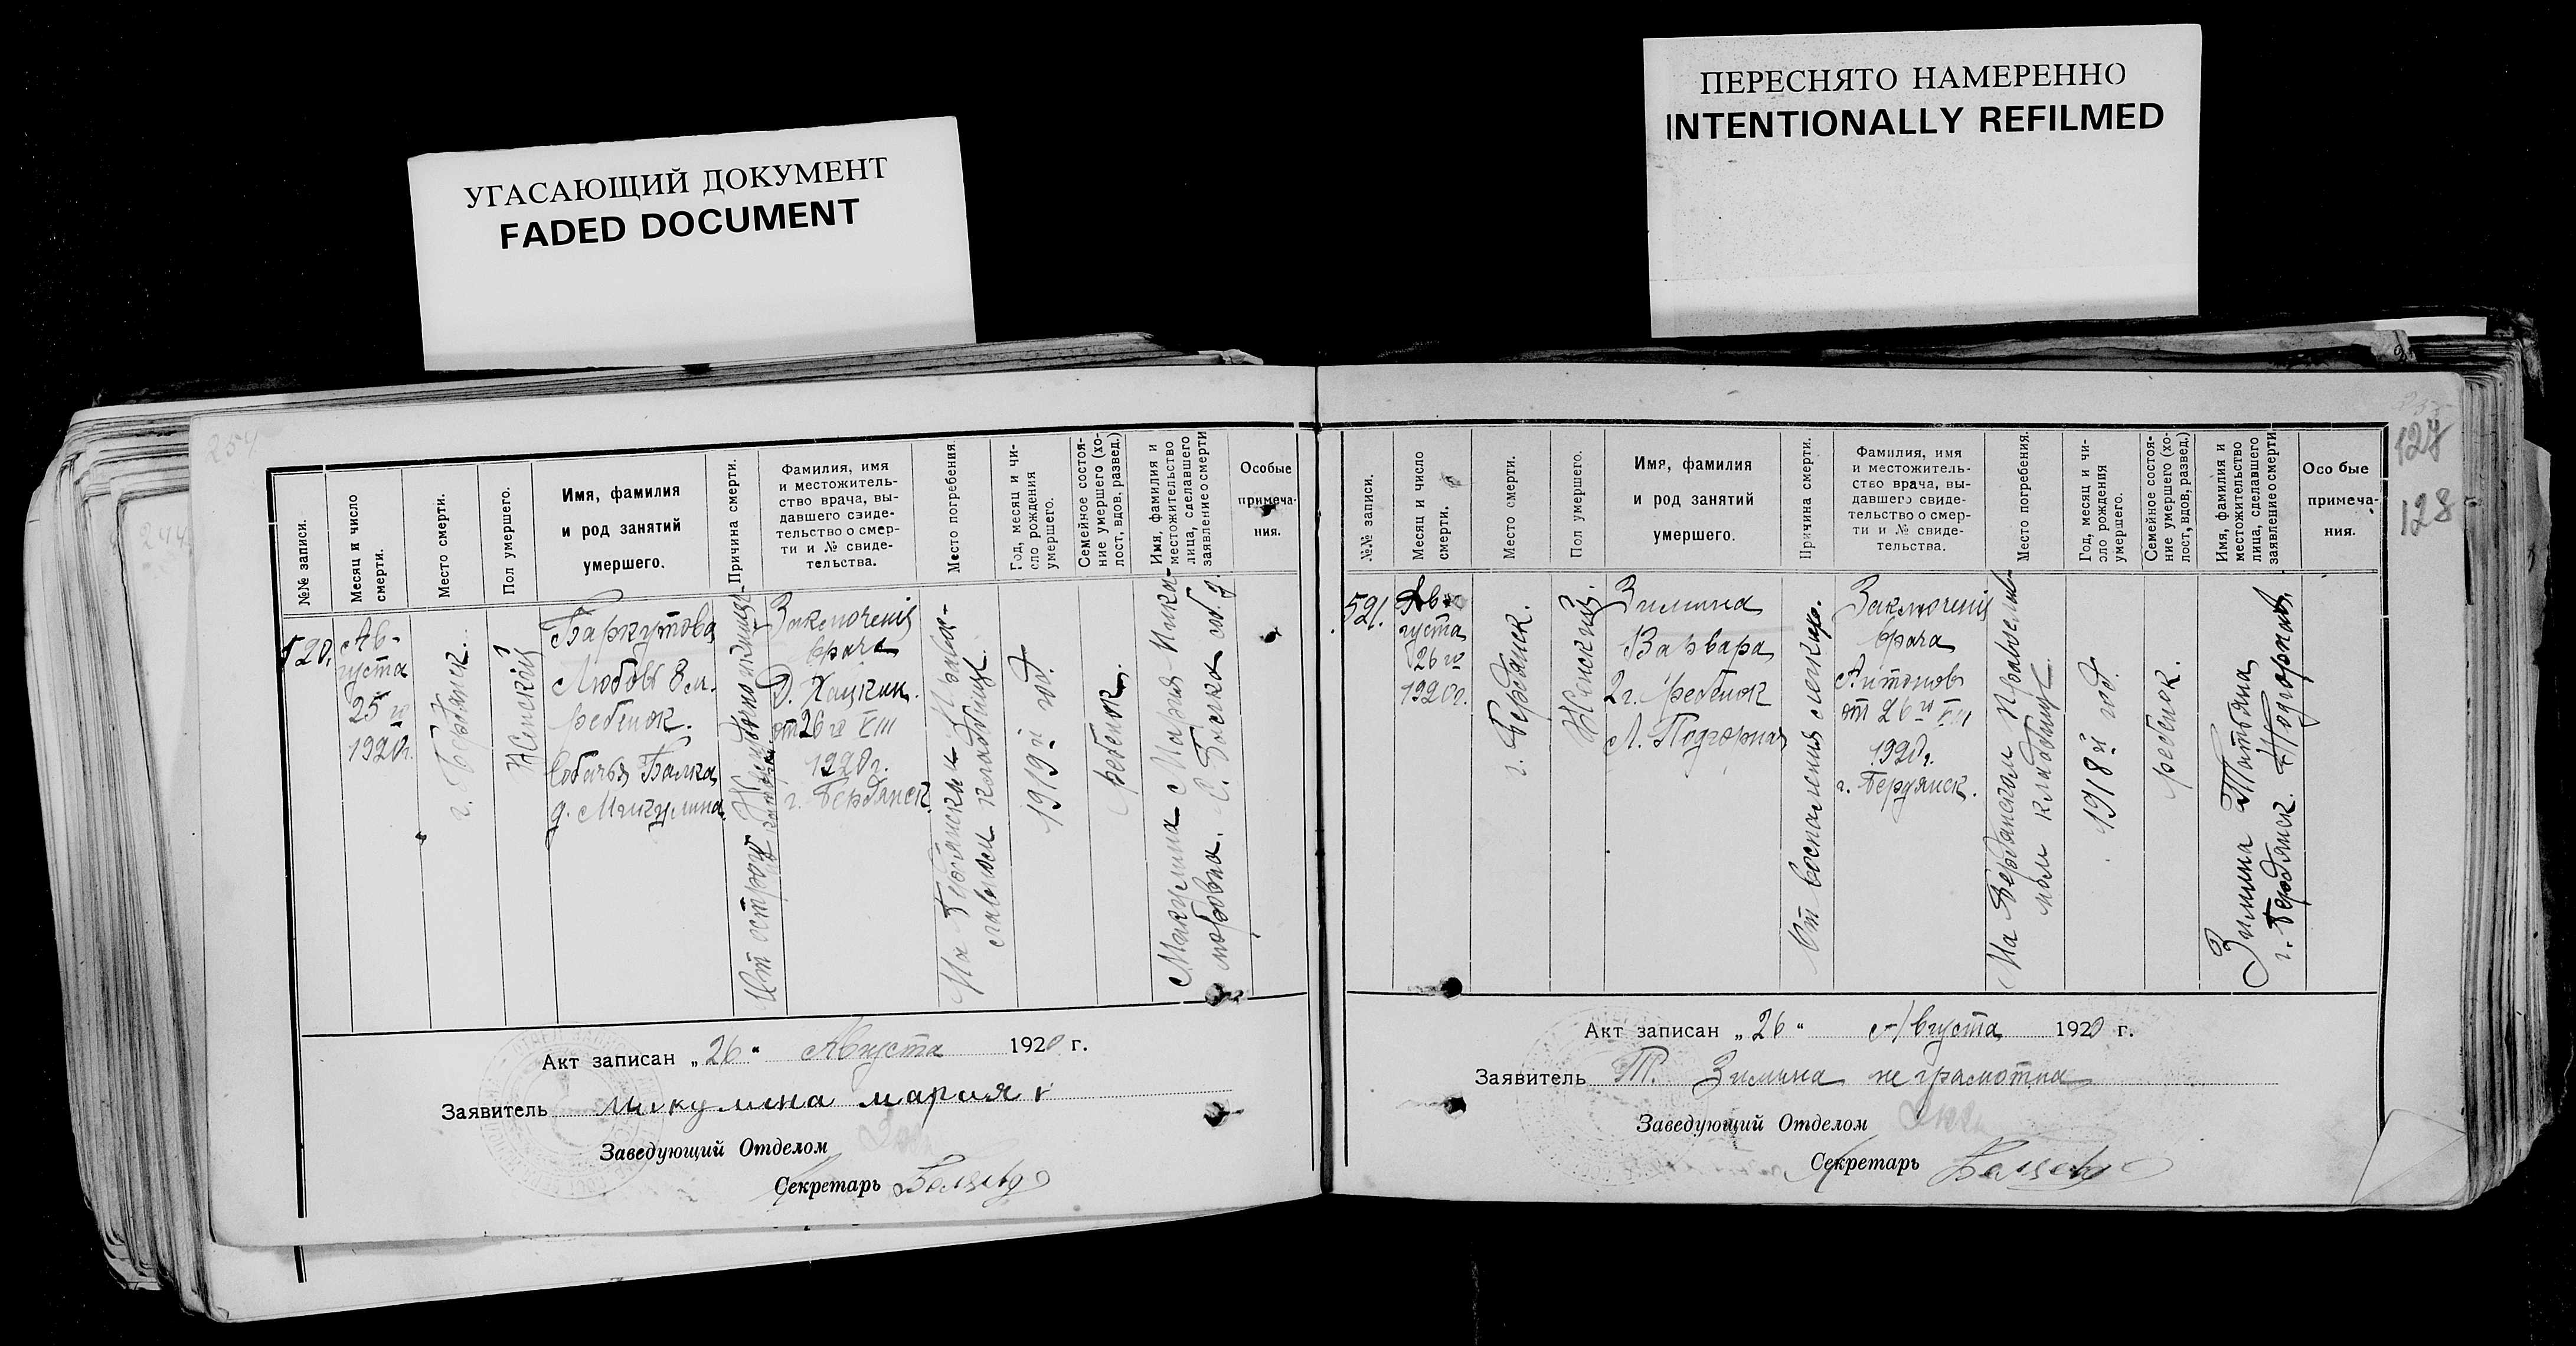 УГАСАЮЩИЙ ДОКУМЕНТ
FADED DOCUMENT
ПЕРЕСНЯТО НАМЕРЕННО
INTENTIONALLY REFILMED
254
№№ записи.
Месяц и число
смерти.
Место смерти.
Пол умершего.
Имя, фамилия
и род занятий
умершего.
Причина смерти.
Фамилия, имя
и местожитель-
ство врача, вы-
давшего свиде-
тельство о смер-
ти и № свиде-
тельства.
Место погребения.
Год, месяц и чи-
сло рождения
умершего.
Семейное состоя-
ние умершего (хо-
лост, вдов, развед.)
Имя, фамилия и
местожительство
лица, сделавшего
заявление о смерти
Особые
примеча-
ния.
520.
Ав-
густа
25 го
1920г.
г. Бердянск.
Женский
Баркутова
Любовь 8 м.
ребенок.
Собачья Балка
д. Микулина.
От острого
Заключения
врача
Д. Хацкин.
от 26 го VIII
1920г.
г. Бердянск.
На Бердянском Правос-
лавном кладбище.
1919 й год.
ребенок.
Микулина Мария
Акт записан „26“ Августа 1920 г.
Заявитель Микулина мария
Заведующий Отделом
Секретарь
127
128
№№ записи.
Месяц и число
смерти.
Место смерти.
Пол умершего.
Имя, фамилия
и род занятий
умершего.
Причина смерти.
Фамилия, имя
и местожитель-
ство врача, вы-
давшего свиде-
тельство о смер-
ти и № свиде-
тельства.
Место погребения.
Год, месяц и чи-
сло рождения
умершего.
Семейное состоя-
ние умершего (хо-
лост, вдов, развед.)
Имя, фамилия и
местожительство
лица, сделавшего
заявление о смерти
Особые
примеча-
ния.
521.
Ав-
густа
26 го
1920г.
г. Бердянск.
Женский.
Зимина
Варвара
2г. ребенок
Л. Подгорная
От воспаления легких.
Заключения
врача
Антонов
от 26 го VIII
1920г.
г. Бердянск.
На Бердянском Православ-
ном кладбище.
1918 й год.
ребенок.
Зимина Татьяна
г. Бердянск. Подгорная.
Акт записан „26“ Августа 1920 г.
Заявитель Т. Зимина неграмотна
Заведующий Отделом
Секретарь